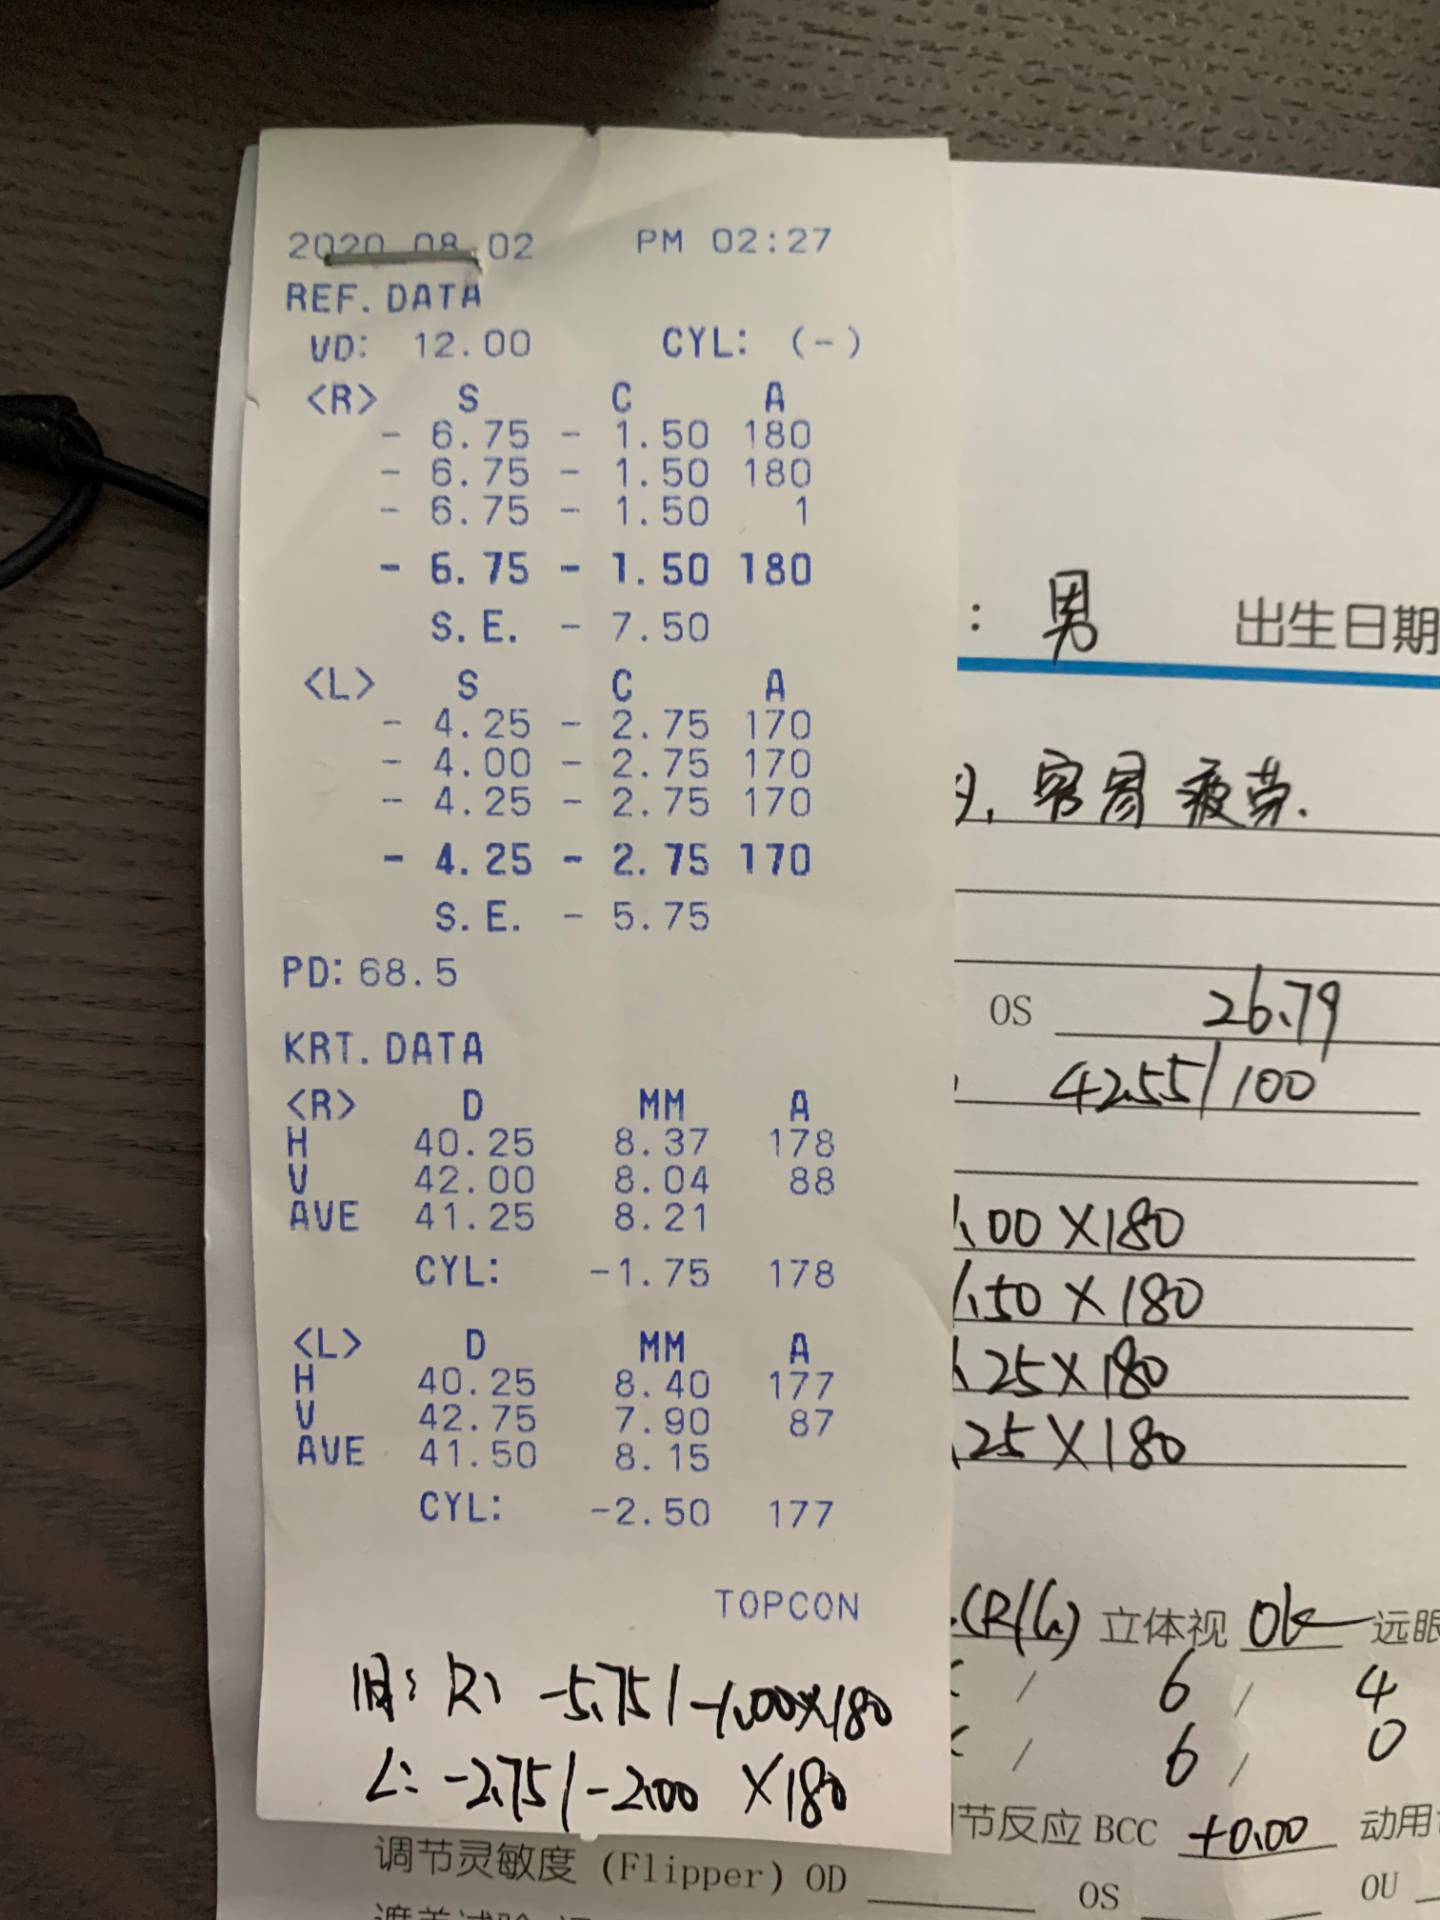 2020_08_02 PM 02:27
REF. DATA
VD: 12.00 CYL: (-)
<R> S C A
- 6.75 - 1.50 180
- 6.75 - 1.50 180
- 6.75 - 1.50 1
- 6.75 - 1.50 180
S.E. - 7.50
<L> S C A
- 4.25 - 2.75 170
- 4.00 - 2.75 170
- 4.25 - 2.75 170
- 4.25 - 2.75 170
S.E. - 5.75
PD: 68.5
KRT. DATA
<R> D MM A
H 40.25 8.37 178
V 42.00 8.04 88
AVE 41.25 8.21
CYL: -1.75 178
<L> D MM A
H 40.25 8.40 177
V 42.75 7.90 87
AVE 41.50 8.15
CYL: -2.50 177
TOPCON
旧: R: -5.75/-1.00×180
L: -2.75/-2.00 ×180
: 男 出生日期
容易疲劳.
OS 26.79
42.55/100
1.00×180
1.50×180
.25×180
.25×180
(R/L) 立体视 ok 远眼
/ 6 / 4
/ 6 / 0
节反应 BCC +0.00 动用
调节灵敏度 (Flipper) OD OS OU